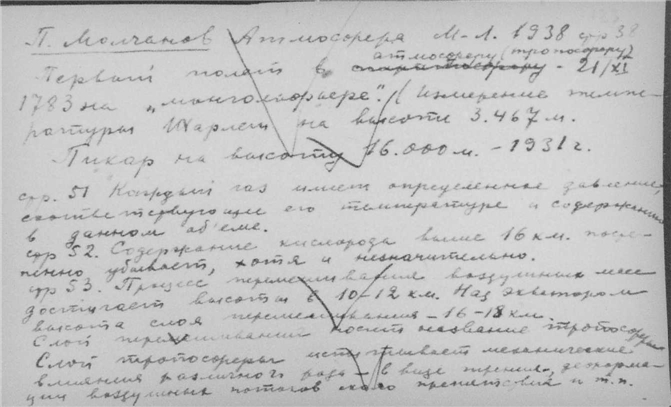 П. Молчанов Атмосфера М-Л. 1938 стр 38
атмосферу (тропосферу)
Первый полет в стратосферу - 21/XI
1783 на „монгольфьере". / Измерение темпе-
ратуры Шарлем на высоте 3.467 м.
Пикар на высоту 16.000 м. - 1931 г.
стр. 51 Каждый газ имеет определенное давление,
соответствующее его температуре и содержанию
в данном об'еме.
стр 52. Содержание кислорода выше 16 км. посте-
пенно убывает, хотя и незначительно.
стр 53. Процесс перемешивания воздушных масс
достигает высоты в 10-12 км. Над экватором
высота слоя перемешивания - 16-18 км.
Слой перемешивания носит название тропосферы
Слой тропосферы испытывает механические
влияния различного рода - в виде трения, деформа-
ции воздушных потоков около препятствий и т.п.